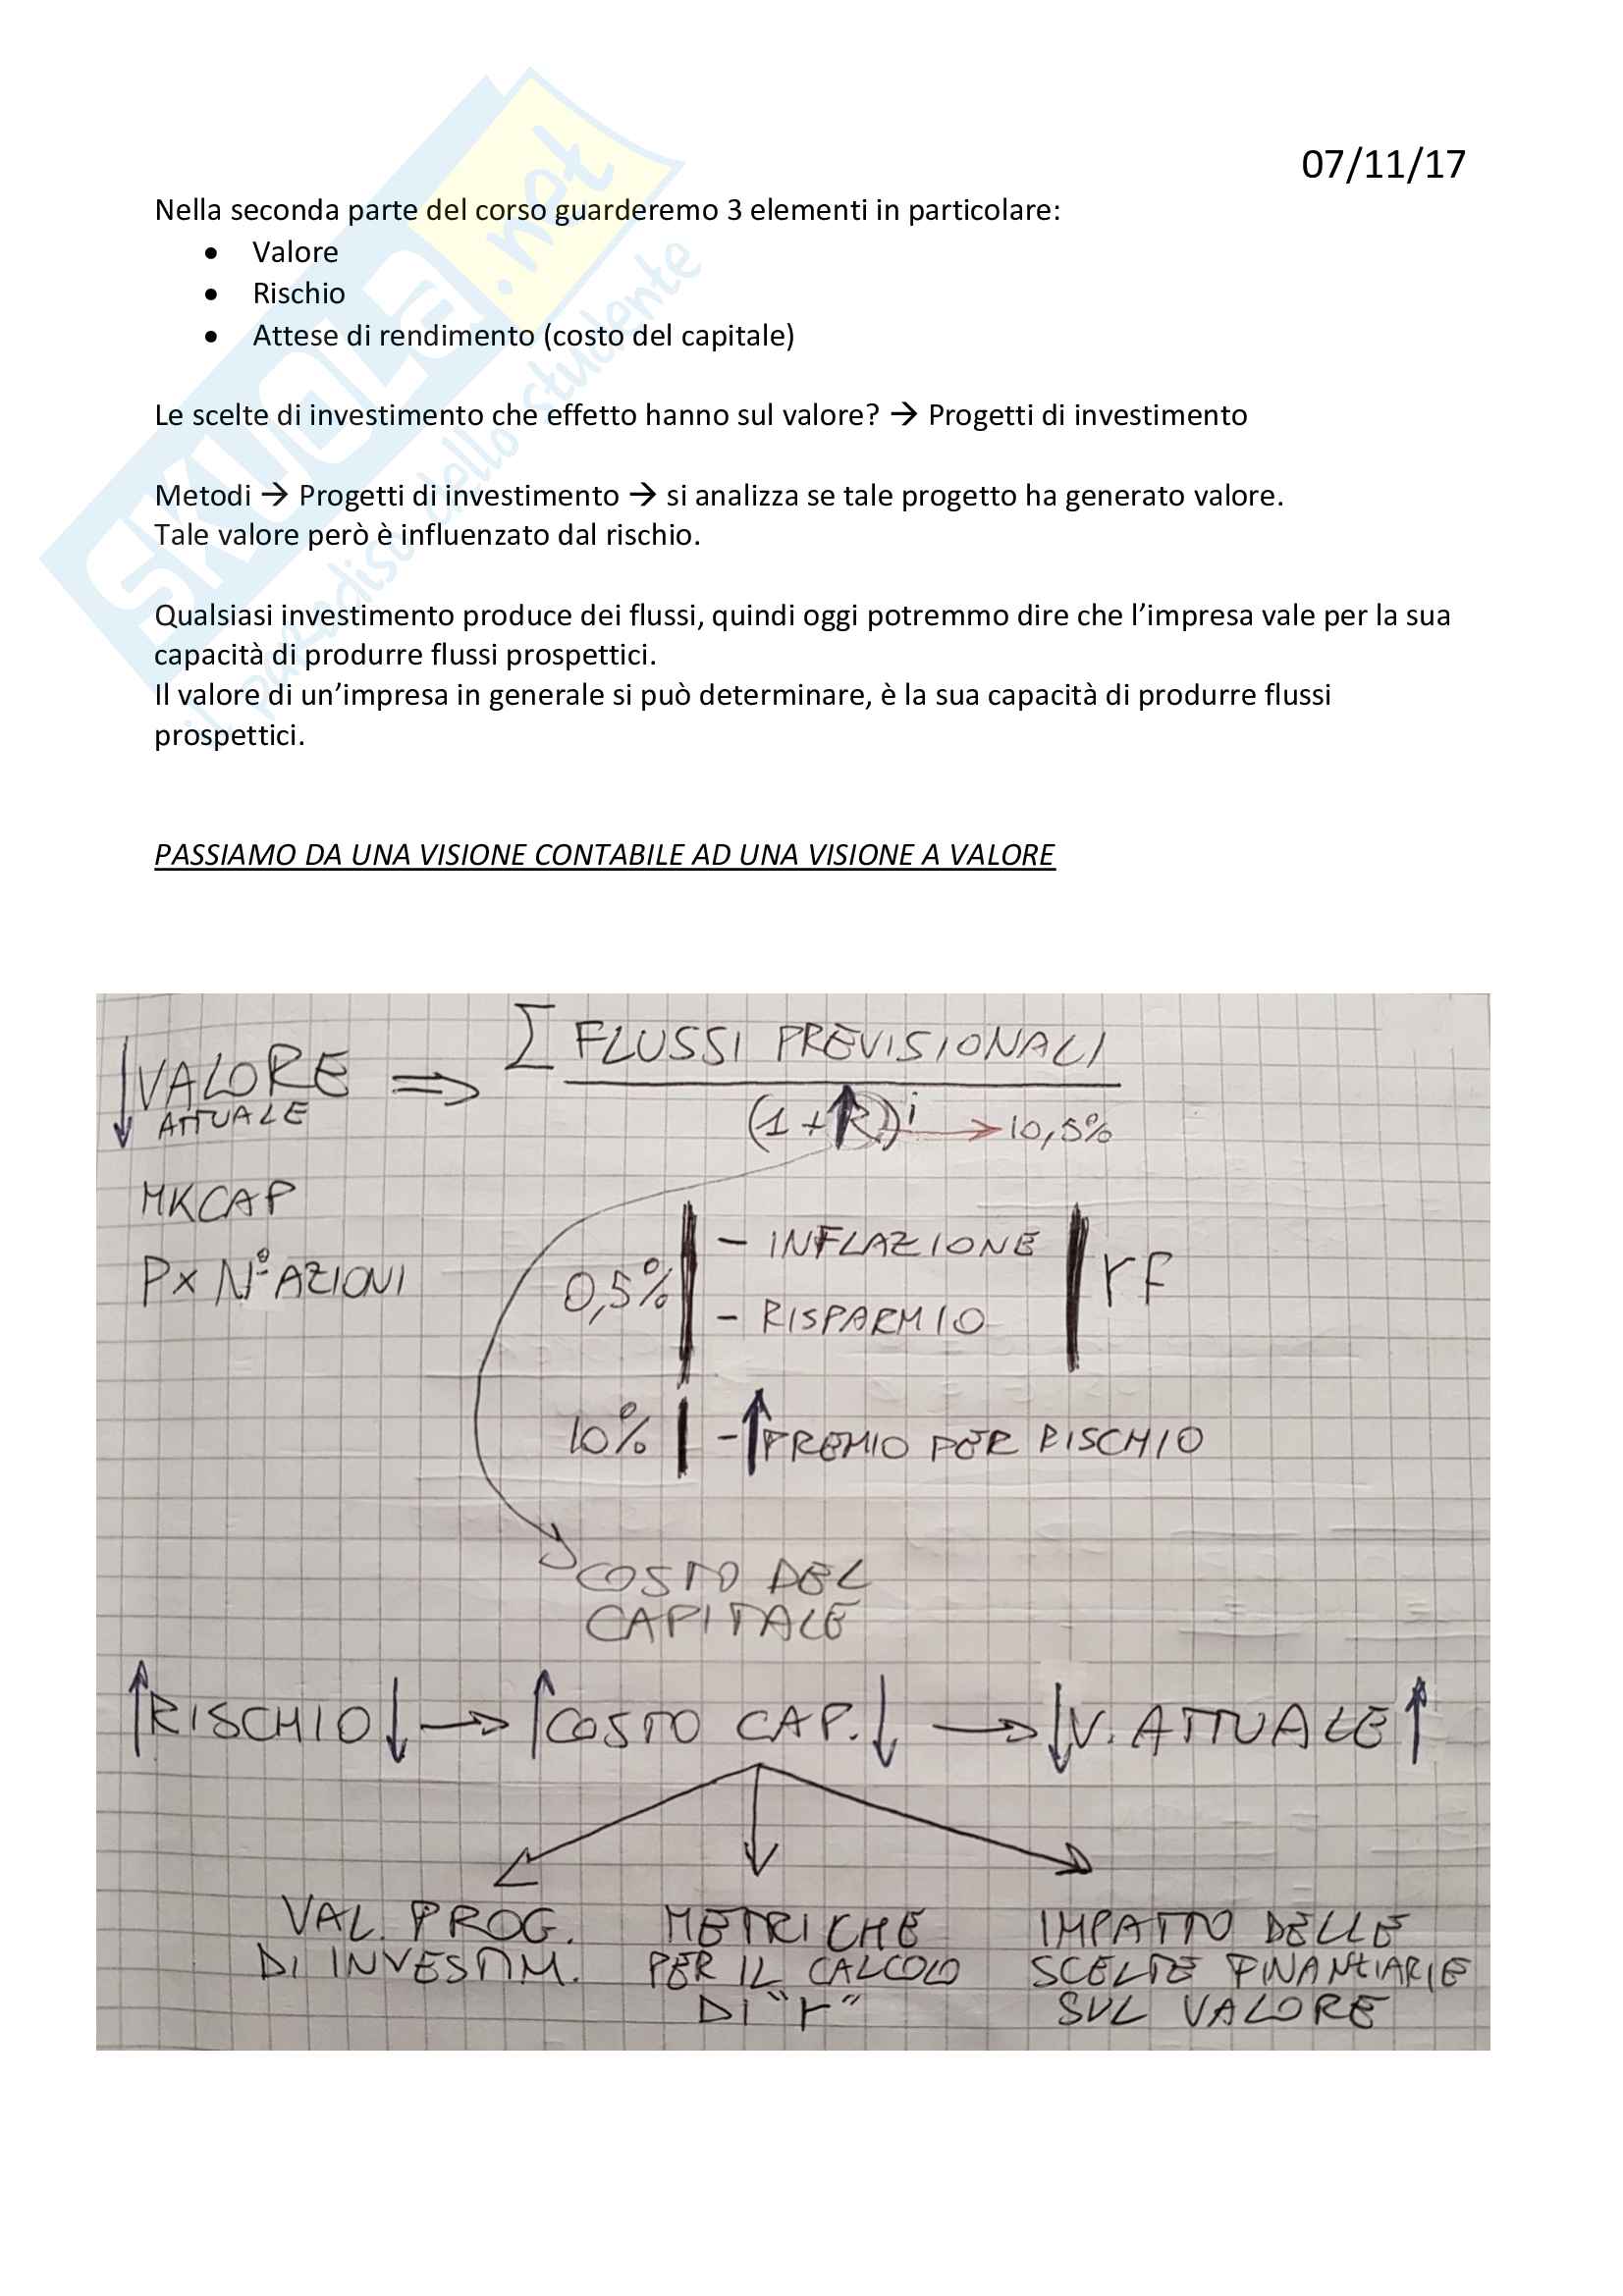 07/11/17
Nella seconda parte del corso guarderemo 3 elementi in particolare:
• Valore
• Rischio
• Attese di rendimento (costo del capitale)
Le scelte di investimento che effetto hanno sul valore? → Progetti di investimento
Metodi → Progetti di investimento → si analizza se tale progetto ha generato valore.
Tale valore però è influenzato dal rischio.
Qualsiasi investimento produce dei flussi, quindi oggi potremmo dire che l’impresa vale per la sua
capacità di produrre flussi prospettici.
Il valore di un’impresa in generale si può determinare, è la sua capacità di produrre flussi
prospettici.
PASSIAMO DA UNA VISIONE CONTABILE AD UNA VISIONE A VALORE
SKUOLA.net
il paradiso dello studente
↓ VALORE ⇒ Σ FLUSSI PREVISIONALI
ATTUALE
(1 + R)^i → 10,5%
MKCAP
P x N° AZIONI
- INFLAZIONE
0,5% rF
- RISPARMIO
10% - ↑ PREMIO PER RISCHIO
COSTO DEL
CAPITALE
↑ RISCHIO ↓ → ↑ COSTO CAP. ↓ → ↓ V. ATTUALE ↑
VAL. PROG.
DI INVESTIM.
METRICHE
PER IL CALCOLO
DI "r"
IMPATTO DELLE
SCELTE FINANZIARIE
SUL VALORE